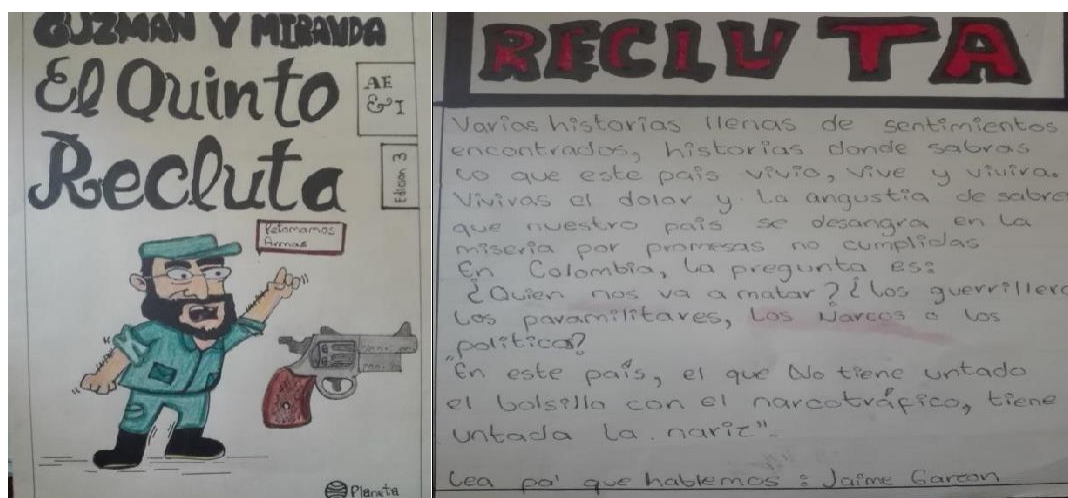 GUZMAN Y MIRANDA
El Quinto
Recluta
AE
&I
Edicion 3
Retomamos
Armas
Planeta
RECLUTA
Varias historias llenas de sentimientos
encontrados, historias donde sabras
lo que este país vivio, vive y vivira.
Vivivas el dolor y la angustia de sabre
que nuestro país se desangra en la
miseria por promesas no cumplidas
En Colombia, la pregunta es:
¿Quien nos va a matar? ¿los guerrillero
los paramilitares, los Narcos o los
politico?
"En este país, el que No tiene untado
el bolsillo con el narcotráfico, tiene
untada la nariz".
Lea pa' que hablemos: Jaime Garzon